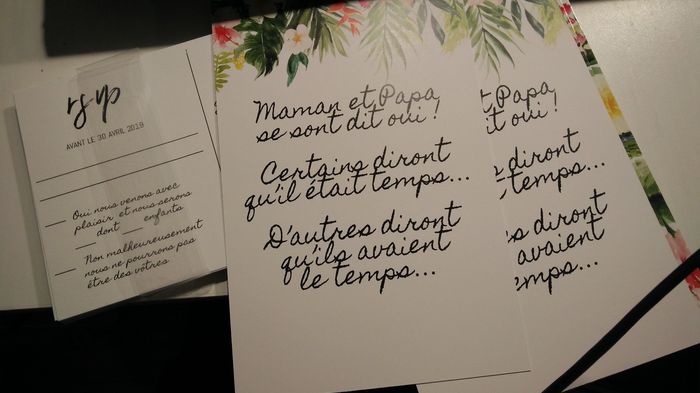 rsvp
AVANT LE 30 AVRIL 2019
Oui nous venons avec
plaisir et nous serons
dont enfants
Non malheureusement
nous ne pourrons pas
être des vôtres
Maman et Papa
se sont dit oui !
Certains diront
qu'il était temps...
D'autres diront
qu'ils avaient
le temps...
t Papa
it oui !
s diront
t temps...
es diront
avaient
emps...